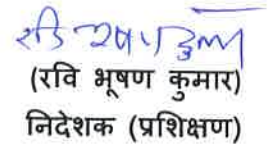 (रवि भूषण कुमार)
निदेशक (प्रशिक्षण)